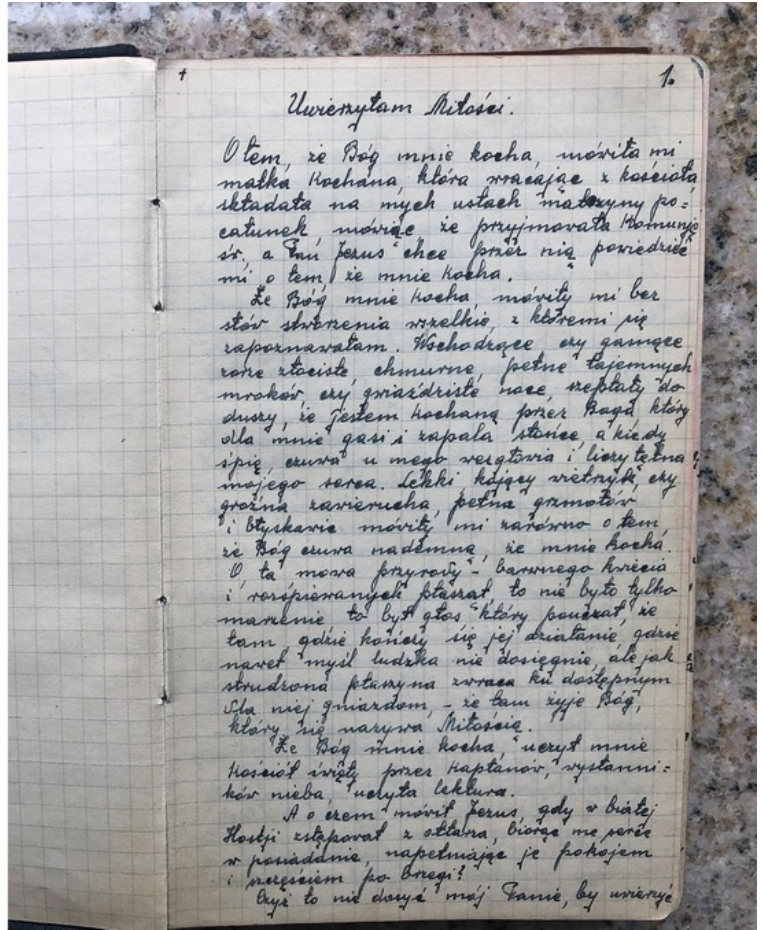 +
1.
Uwierzyłam Miłości.
O tem, że Bóg mnie kocha, mówiła mi
matka kochana, która wracając z kościoła
składała na mych ustach matczyny po=
całunek, mówiąc że przyjmowała Komunję
św., a Pan Jezus chce przez nią powiedzieć
mi o tem, że mnie kocha.
Że Bóg mnie kocha, mówiły mi bez
słów stworzenia wszelkie, z któremi się
zapoznawałam. Wschodzące czy gasnące
zorze złociste, chmurne, pełne tajemnych
mroków, czy gwiaździste noce, szeptały do
duszy, że jestem kochaną przez Boga który
dla mnie gasi i zapala słońce, a kiedy
śpię, czuwa u mego wezgłowia i liczy tętna
mojego serca. Lekki kojący wietrzyk, czy
groźna zawierucha, pełna grzmotów
i błyskawic mówiły mi zarówno o tem,
że Bóg czuwa nademną, że mnie kocha.
O, ta mowa przyrody – barwnego kwiecia
i rozśpiewanych ptasząt, to nie było tylko
marzenie to był głos który pouczał, że
tam, gdzie kończy się jej działanie, gdzie
nawet myśl ludzka nie dosięgnie, ale jak
strudzona ptaszyna zwraca ku dostępnym
dla niej gniazdom, – że tam żyje Bóg,
który się nazywa Miłością.
Że Bóg mnie kocha, uczył mnie
Kościół święty przez kapłanów, wysłanni=
ków nieba, uczyła lektura.
A o czem mówił Jezus, gdy w białej
Hostji zstępował z ołtarza, biorąc me serce
w posiadanie, napełniając je pokojem
i szczęściem po brzegi?
Czyż to nie dosyć mój Panie, by uwierzyć